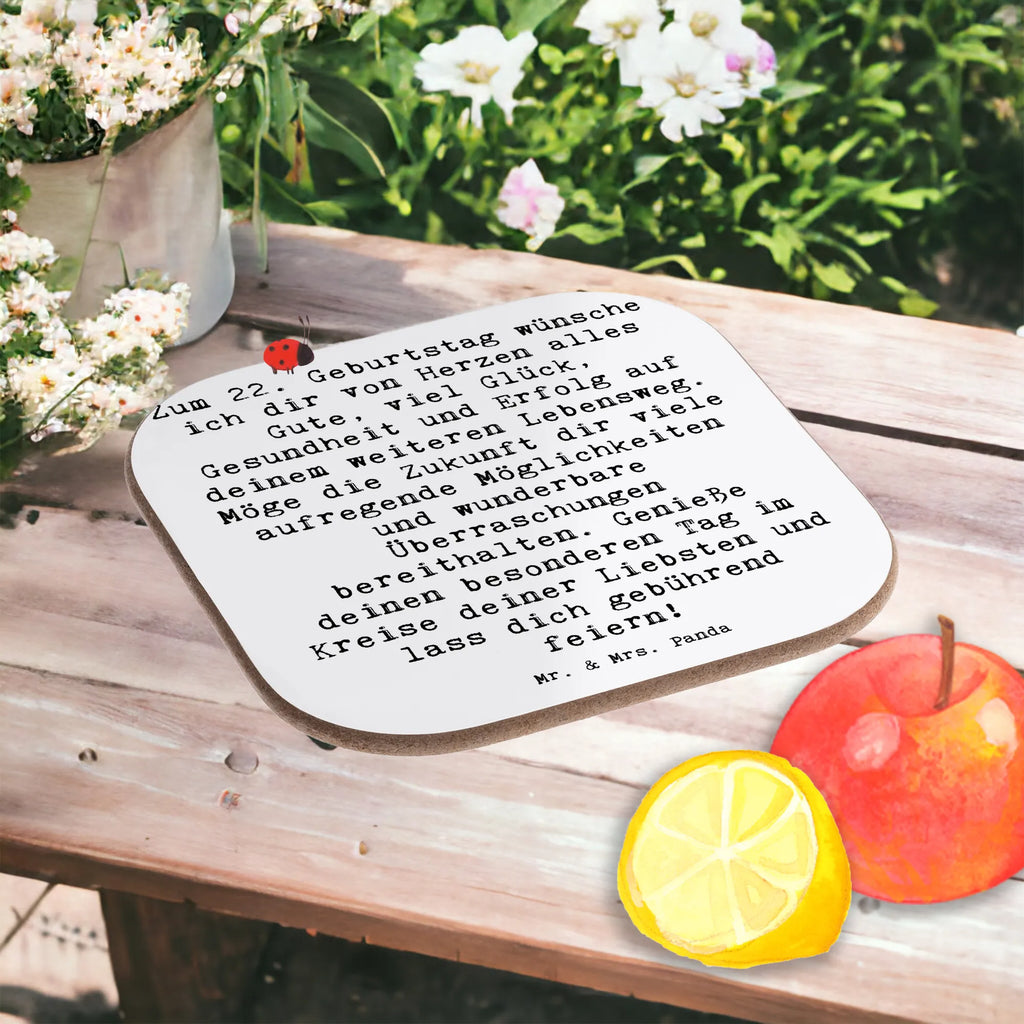 Zum 22. Geburtstag wünsche
ich dir von Herzen alles
Gute, viel Glück,
Gesundheit und Erfolg auf
deinem weiteren Lebensweg.
Möge die Zukunft dir viele
aufregende Möglichkeiten
und wunderbare
Überraschungen
bereithalten. Genieße
deinen besonderen Tag im
Kreise deiner Liebsten und
lass dich gebührend
feiern!
Mr. & Mrs. Panda